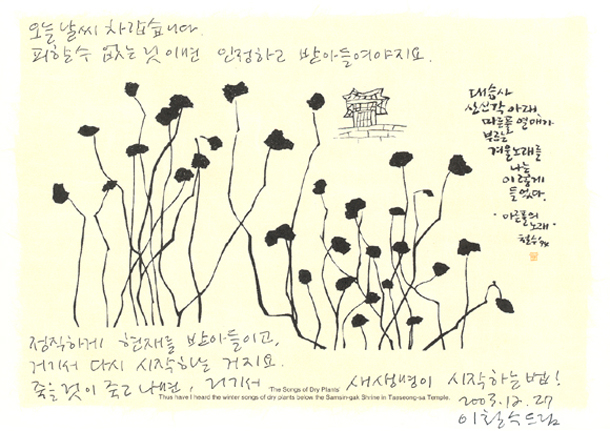 오늘 날씨 차랍습니다.
피할 수 없는 것이면 인정하고 받아들여야지요.
대승사
산신각 아래,
마른풀 열매가
부르는
겨울노래를
나는
이렇게
들었다.
· 마른풀의
노래 ·
철수 94
정직하게 현재를 받아들이고,
거기서 다시 시작하는 거지요.
죽을 것이 죽고 나면, 거기서 새 생명이 시작하는 법!
'The Songs of Dry Plants'
Thus have I heard the winter songs of dry plants below the Samsin-gak Shrine in Taeseong-sa Temple.
2003.12.27
이철수 드림